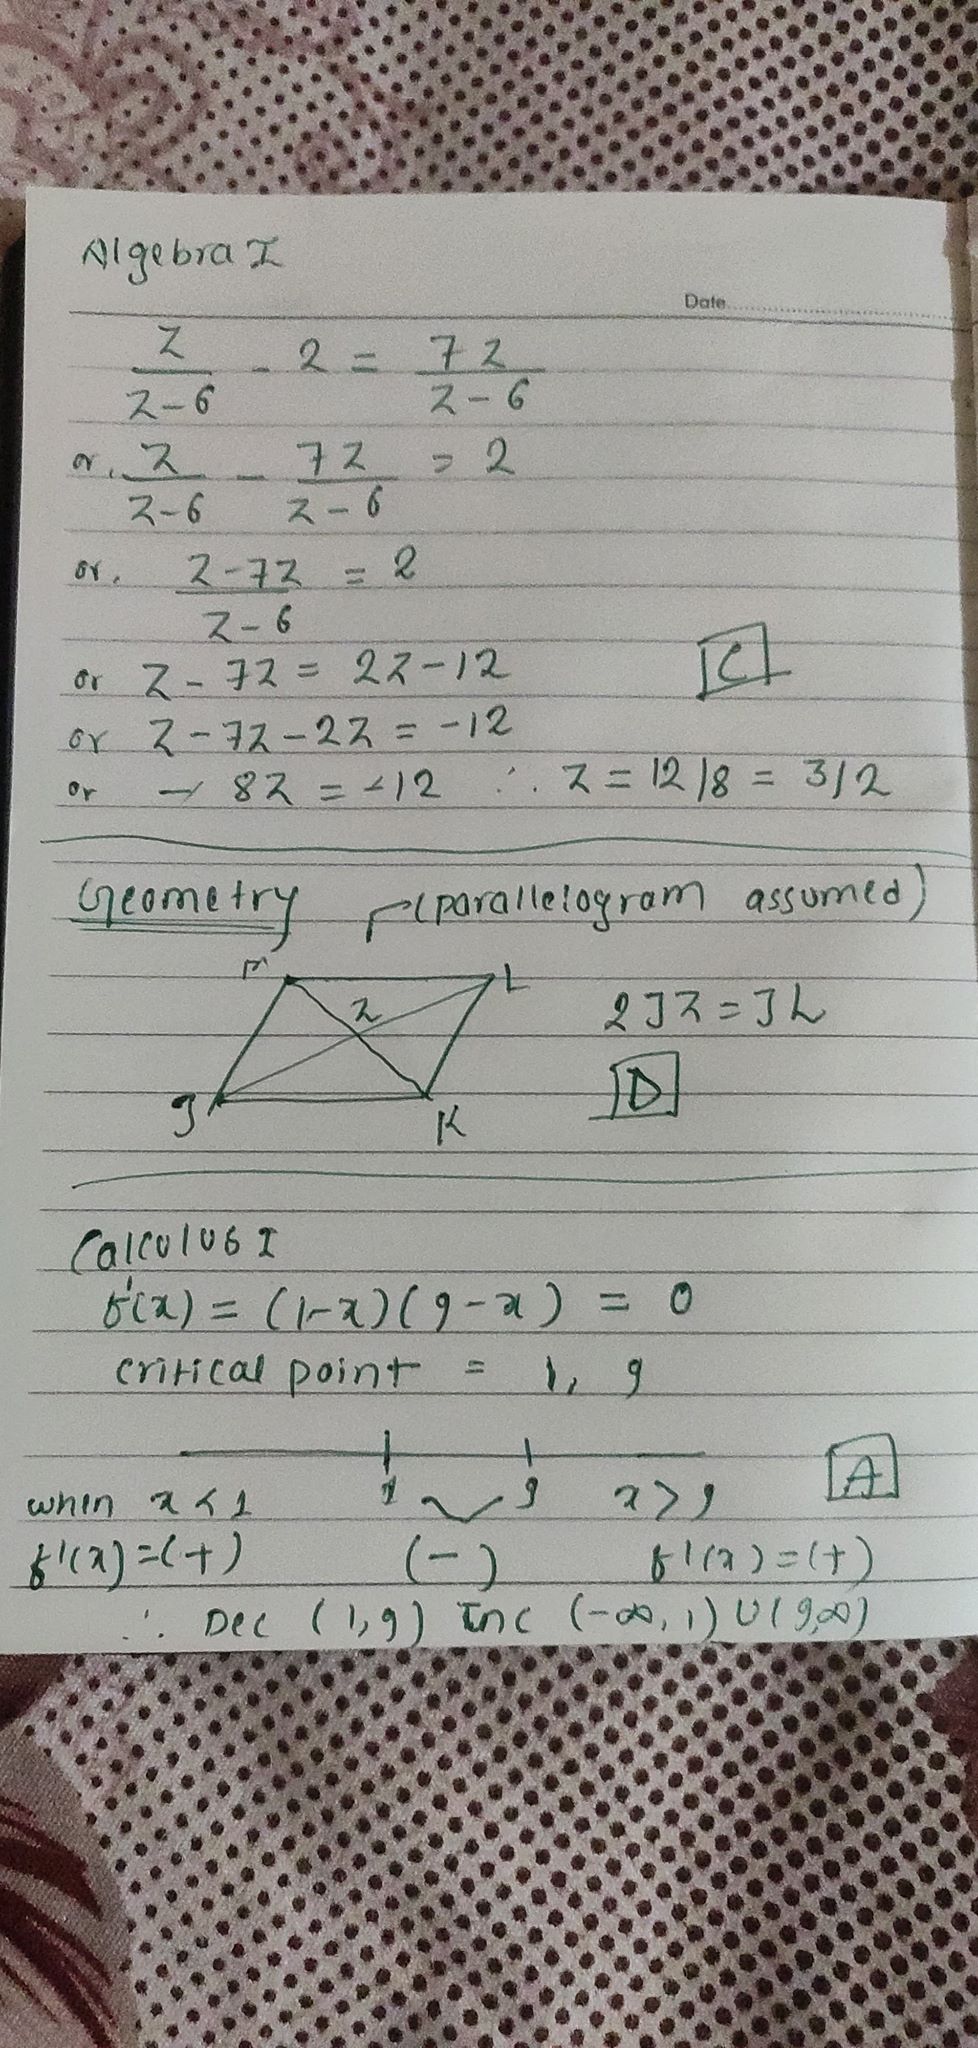 Algebra I
Date
z/z-6 - 2 = 7z/z-6
or, z/z-6 - 7z/z-6 = 2
or, z-7z/z-6 = 2
or z - 7z = 2z-12
C
or z - 7z - 2z = -12
or - 8z = -12 ∴ z = 12/8 = 3/2
Geometry (parallelogram assumed)
M L
z 2Jz = JL
D
J K
Calculus I
f'(x) = (1-x)(9-x) = 0
critical point = 1, 9
A
when x < 1 1 9 x > 9
f'(x) = (+) (-) f'(x) = (+)
∴ Dec (1,9) Inc (-∞, 1) U (9,∞)